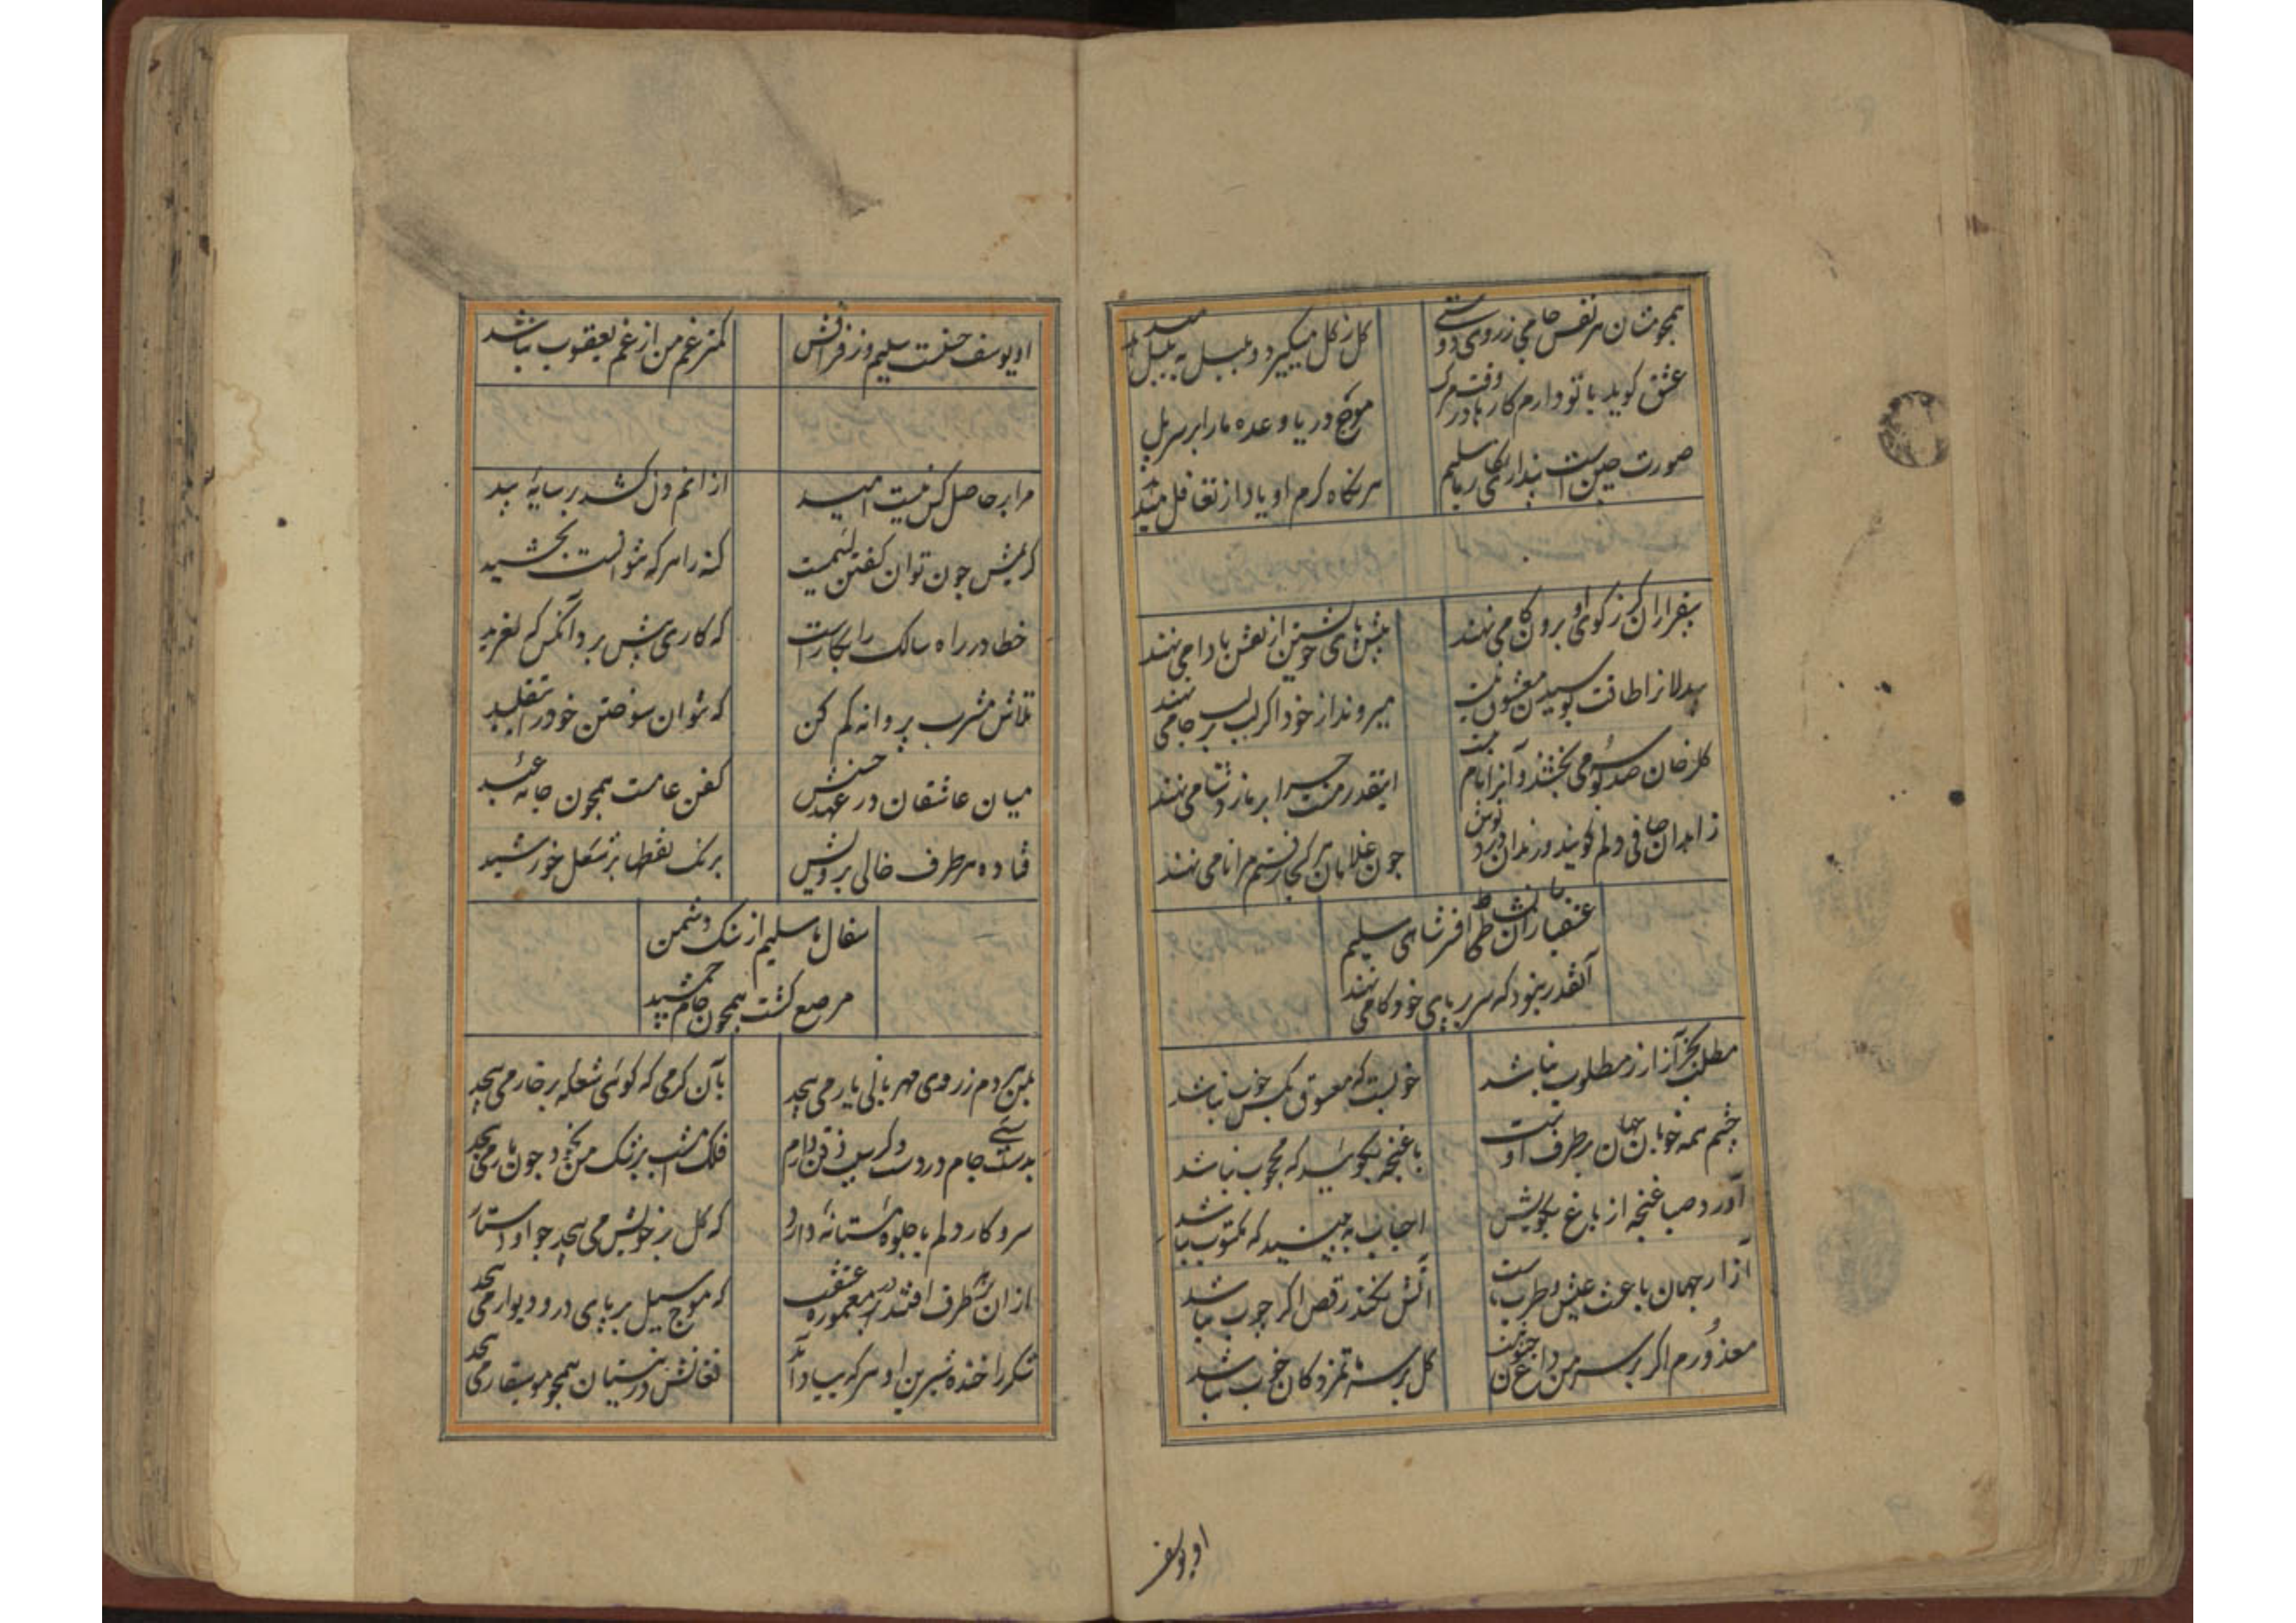 همچو مستان هر نفس جامی ز روی دوستی
گل ز گل میگیرد و بلبل به بلبل میدهد
عشق گوید با تو دارم کارها در وقت مرگ
موج دریا وعده ما را بر سر پل
صورت چین است پنداری نگار ما سلیم
هر نگاه گرم او یاد از تغافل میدهد
بیقراران کز کوی او برون گامی نهند
پیش پای خویشتن از نقش پا دامی نهند
بیدلان را طاقت بوسیدن معشوق نیست
میروند از خود اگر لب بر لب جامی نهند
گلرخان صد بوسه می بخشند و آنرا نام نیست
اینقدر منت چرا بر ما ز دشنامی نهند
زاهدان صافی دلم گویند و رندان درد نوش
چون غلامان هر کجا رفتم مرا نامی نهند
عشقبازان را نشاط جان افشانی سلیم
آنقدر نبود که سر بر پای خودکامی نهند
مطلب بجز آزار ز مطلوب نباشد
خوبست که معشوق بکس خوب نباشد
چشم همه خوبان جهان بر طرف اوست
با غنچه بگویید که محجوب نباشد
آورد صبا غنچه از باغ بکویش
احباب به بینید که مکتوب نباشد
آزار جهان باعث عیش و طرب ماست
آتش نکند رقص اگر چوب نباشد
معذورم اگر بر سر من داغ جنون نیست
گل بر سر ماتم زدگان خوب نباشد
او یوسف
او یوسف حسنست سلیم و ز فراقش
کمتر غم من از غم یعقوب نباشد
مرا بر حاصل کس نیست امید
از آنم دل کشد بر سایهٔ بید
کریمش چون توان گفتن لئیمیست
گنه را هر که نتوانست بخشید
خطا در راه سالک را بکار است
که کاری پیش برد آنکس که لغزید
تلاش مشرب پروانه کم کن
که نتوان سوختن خود را به تقلید
میان عاشقان در عهد حسنش
کفن عامست همچون جامه عید
فتاده هر طرف خالی برویش
برنگ نقطها بر شکل خورشید
سفال ما سلیم از سنگ دشمن
مرصع گشت همچون جام جمشید
بمن هر دم ز روی مهربانی یار می پیچد
بآن گرمی که گوئی شعله بر خار می پیچد
بدستی جام در دست دگر سیب ذقن دارم
فلک امشب ز رشک من بخود چون مار می پیچد
سر و کار دلم با جلوهٔ مستانهٔ دارد
که گل بر خویش می پیچد چو او دستار
ازان هر طرف افتند در معموره عشقت
که موج سیل بر پای در و دیوار می پیچد
شکر را خنده شیرین او هر گه بیاد آمد
فغانش در نیستان همچو موسیقار می پیچد